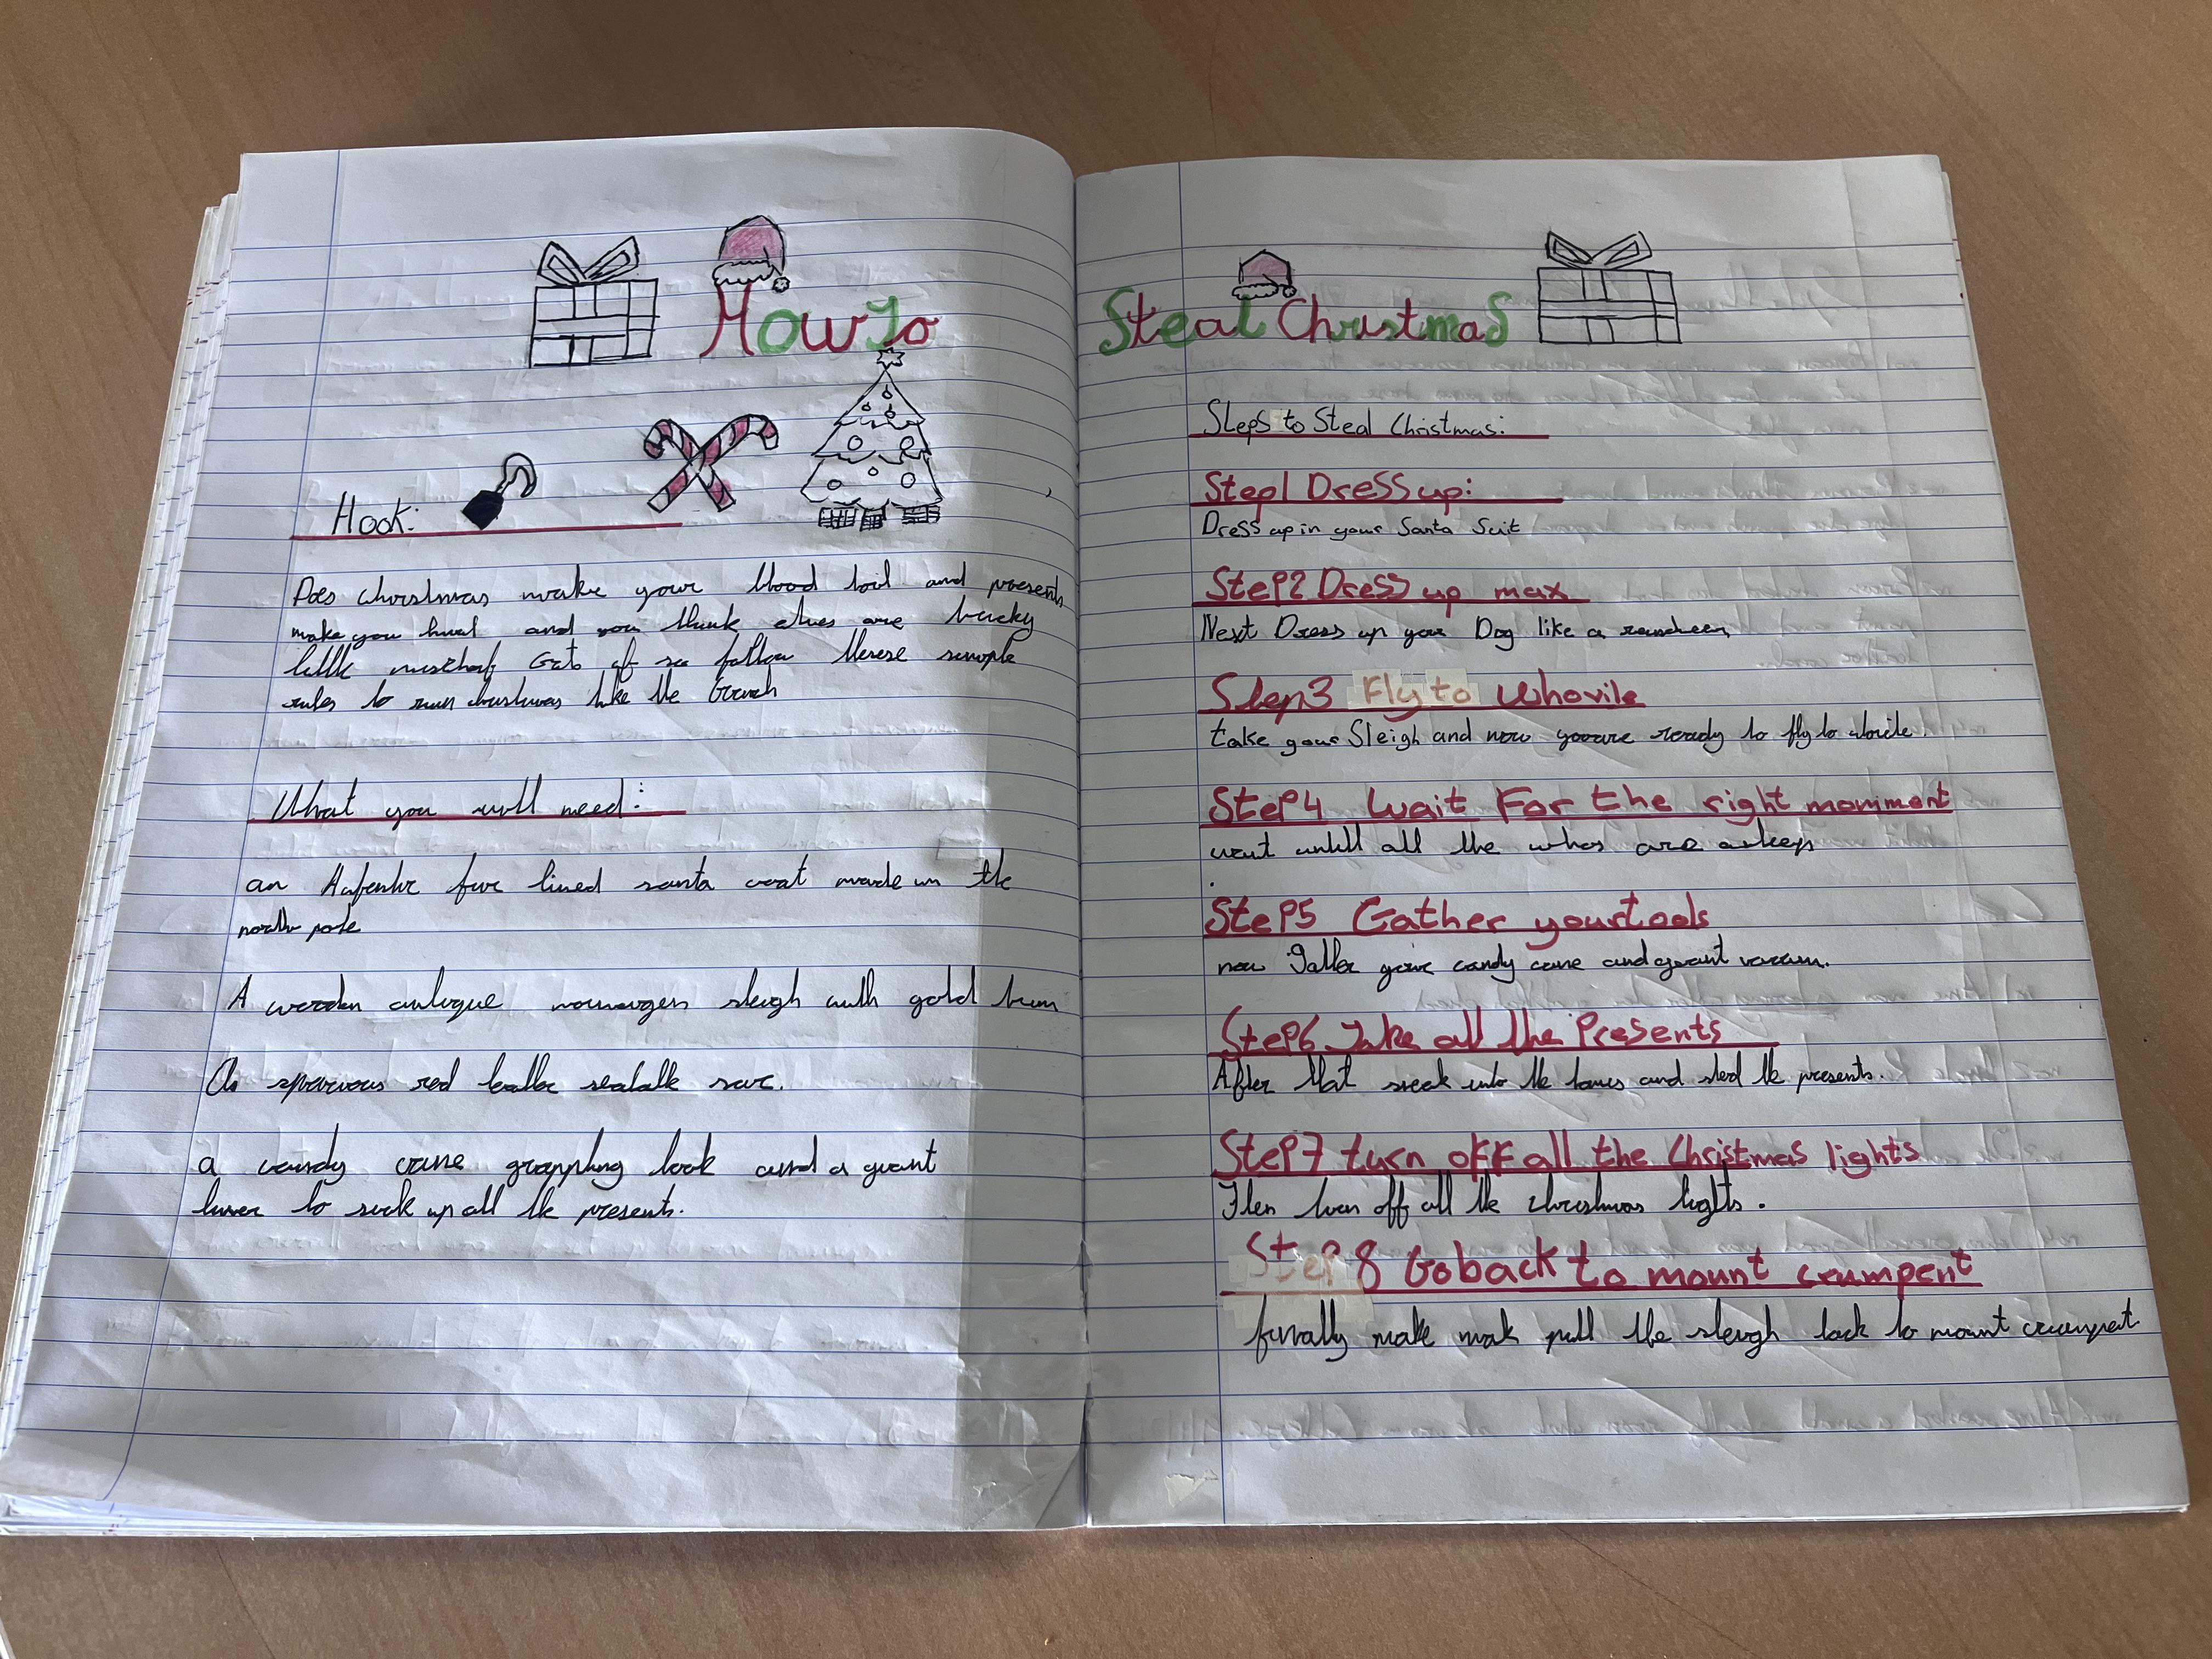 How To
Steal Christmas
Hook:
Does christmas make your blood boil and presents
make you hurl and you think elves are
little mischeif Gets if so follow these simple
rules to ruin christmas like the Grinch
What you will need:
an fur lined santa coat made in the
north pole
A wooden antique sleigh with gold trim
red leather sac.
a candy cane grappling hook and a giant
to suck up all the presents.
Steps to Steal Christmas:
Step1 Dress up:
Dress up in your Santa Suit
Step2 Dress up max
Next Dress up your Dog like a
Step3 Fly to Whovile
take your Sleigh and now you are ready to fly to
Step4 Wait For the right momment
wait untill all the whos are asleep
Step5 Gather your tools
now Gather your candy cane and giant vacum.
Step6 Take all the Presents
After that sneak into the and steal the presents.
Step7 turn off all the Christmas lights
Then turn off all the christmas lights.
Step 8 Go back to mount crumpent
finally make max pull the sleigh back to mount crumpet